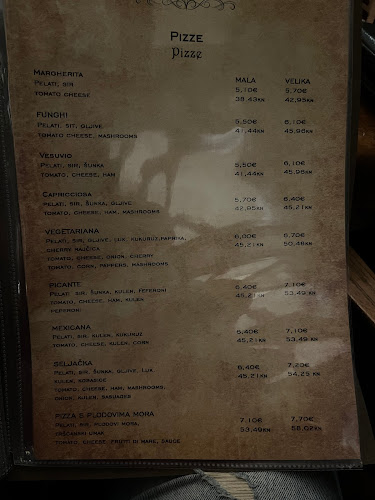 Pizze
Pizze
MALA VELIKA
Margherita
Pelati, sir 5,10€ 5,70€
tomato cheese 38.43kn 42,95kn
Funghi
Pelati, sit, gljive 5,50€ 6,10€
tomato cheese, mashrooms 41,44kn 45,96kn
Vesuvio
Pelati, sir, šunka 5,50€ 6,10€
tomato, cheese, ham 41,44kn 45,96kn
Capricciosa
Pelati, sir, šunka, gljive 5,70€ 6,40€
tomato, cheese, ham, mashrooms 42,95kn 45,21kn
Vegetariana
Pelati, sir, gljive, luk, kukuruz, paprika, 6,00€ 6,70€
cherry rajčica 45,21kn 50,48kn
tomato, cheese, onion, cherry
tomato, corn, peppers, mashrooms
Picante
Pelati, sir, šunka, kulen, feferoni 6,40€ 7,10€
tomato, cheese, ham, kulen 45,21kn 53,49 kn
peperoni
Mexicana
Pelati, sir, kulen, kukuruz 6,40€ 7,10€
tomato, cheese, kulen, corn 45,21kn 53,49kn
Seljačka
Pelati, sir, šunka, gljive, luk 6,40€ 7,20€
kulen, kobasice 45,21kn 54,25 kn
tomato, cheese, ham, mashrooms,
onion, kulen, sausages
Pizza s plodovima mora
Pelati, sir, plodovi mora, 7,10€ 7,70€
umak 53,49kn 58,02kn
tomato, cheese, frutti di mare,